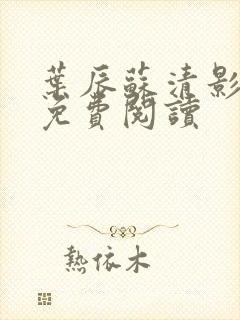 葉辰蘇清影
免費閱讀
熱依木